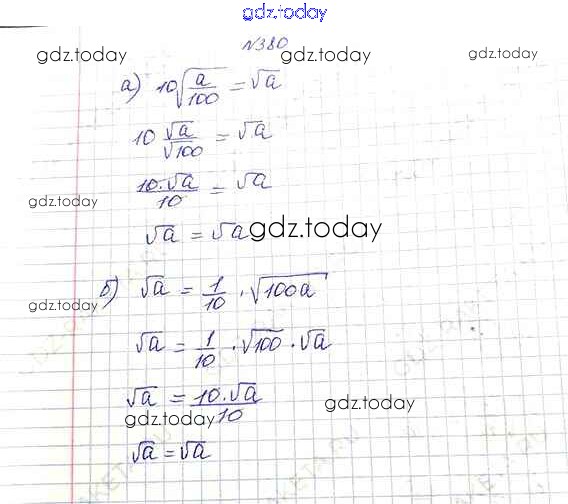 gdz.today
№380
gdz.today gdz.today gdz.today
а) 10√(a/100) = √a
10 √a/√100 = √a
10·√a/10 = √a
gdz.today
√a = √a gdz.today
б) √a = 1/10 · √100a
gdz.today
√a = 1/10 · √100 · √a
√a = 10·√a/10
gdz.today gdz.today
√a = √a